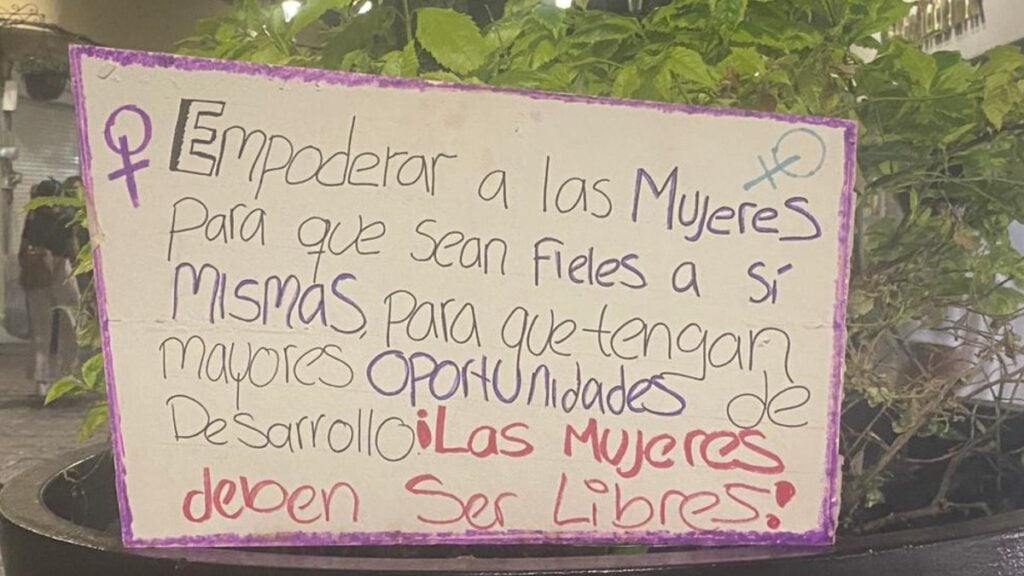 Empoderar a las Mujeres
para que sean fieles a sí
mismas, para que tengan
mayores oportunidades de
Desarrollo ¡Las Mujeres
deben Ser Libres!